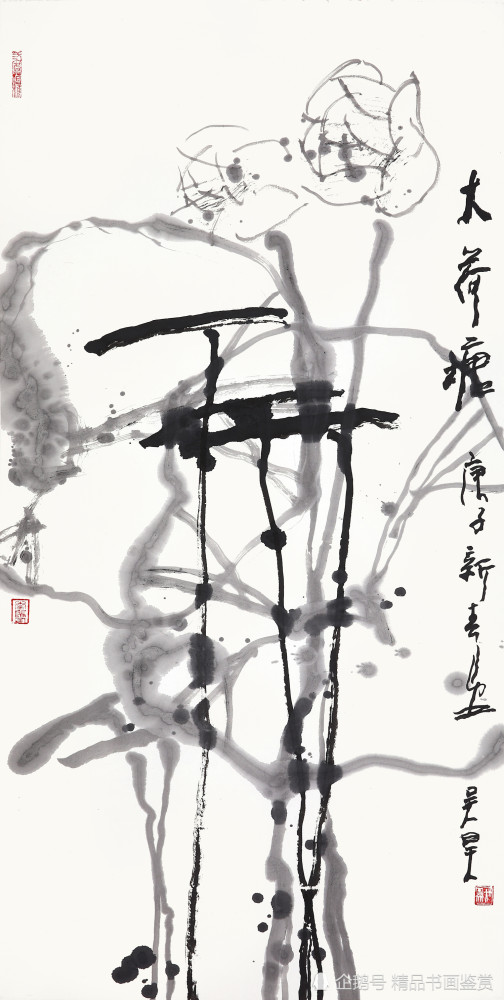 荷塘 庚子新春 画 吴昊
企鹅号 精品书画鉴赏